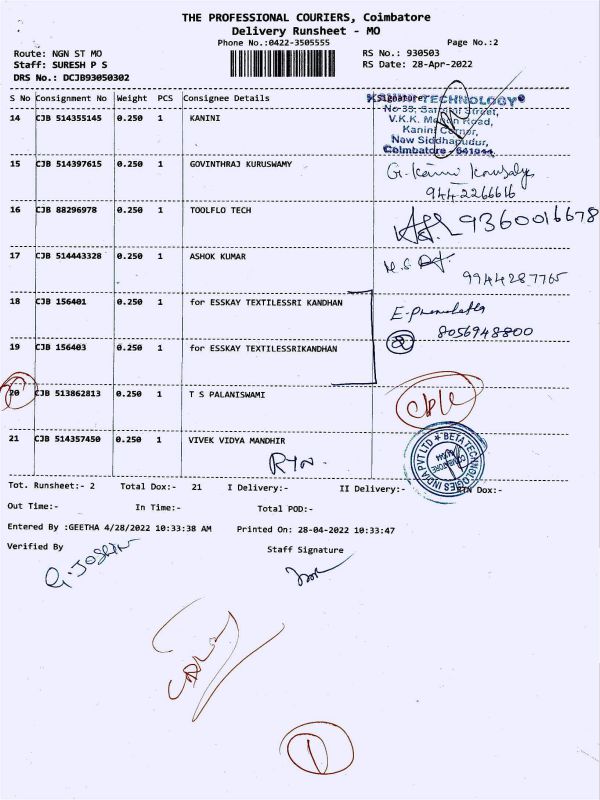 THE PROFESSIONAL COURIERS, Coimbatore
Delivery Runsheet - MO
Phone No.:0422-3505555 Page No.:2
Route: NGN ST MO RS No.: 930503
Staff: SURESH P S RS Date: 28-Apr-2022
DRS No.: DCJB93050302
S No Consignment No Weight PCS Consignee Details Signature
TECHNOLOGY
14 CJB 514355145 0.250 1 KANINI
V.K.K. Menon Road,
Kanini Corner,
New Siddhapudur,
Coimbatore - 641044
15 CJB 514397615 0.250 1 GOVINTHRAJ KURUSWAMY
9442266616
16 CJB 88296978 0.250 1 TOOLFLO TECH 9360016678
17 CJB 514443328 0.250 1 ASHOK KUMAR
9944287765
18 CJB 156401 0.250 1 for ESSKAY TEXTILESSRI KANDHAN
8056948800
19 CJB 156403 0.250 1 for ESSKAY TEXTILESSRIKANDHAN
20 CJB 513862813 0.250 1 T S PALANISWAMI
21 CJB 514357450 0.250 1 VIVEK VIDYA MANDHIR
BETA TECHNOLOGIES INDIA PVT LTD
RTN
Tot. Runsheet:- 2 Total Dox:- 21 I Delivery:- II Delivery:- RTN Dox:-
Out Time:- In Time:- Total POD:-
Entered By :GEETHA 4/28/2022 10:33:38 AM Printed On: 28-04-2022 10:33:47
Verified By Staff Signature
1